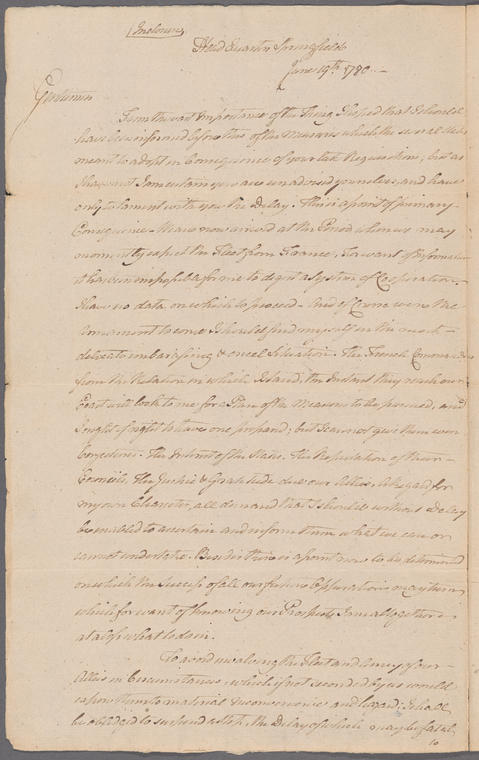 (Inclosure)
Head Quarters Springfield
June 19th. 1780. —
Gentlemen
From the vast Importance of the Thing I hoped that I should
have been informed before this of the Measures which the several States
meant to adopt in Consequence of your late Requisitions, but as
I have not I am certain you are unadvised yourselves, and have
only to lament with you the Delay. This is a point of primary
Consequence — We are now arrived at the Period when we may
momently expect the Fleet from France. For want of Information
it has been impossible for me to digest a System of Cooperation. —
I have no data on which to proceed — And of Course were the
Armament to come I should find myself in the most —
delicate embarassing & cruel Situation. The French Commanders
from the Relation in which I stand, the Instant they reach our
Coast will look to me for a Plan of the Measures to be pursued, and
I ought of right to have one prepared; but I cannot give them even
Conjectures. The Interest of the States. The Reputation of their —
Councils, The Justice & Gratitude due our Allies, A Regard for
my own Character, all demand that I should without Delay
be enabled to ascertain and inform them what we can or
cannot undertake. Besides there is a point now to be determined
on which the Success of all our future Opperations may turn
which for want of knowing our Prospects I am altogether —
at a loss what to do in.
To avoid involving the Fleet and Army of our —
Allies in Circumstances, which if not seconded by us would
expose them to material Inconvenience and hazard; I shall
be obliged to suspend a step, the Delay of which may be fatal
to